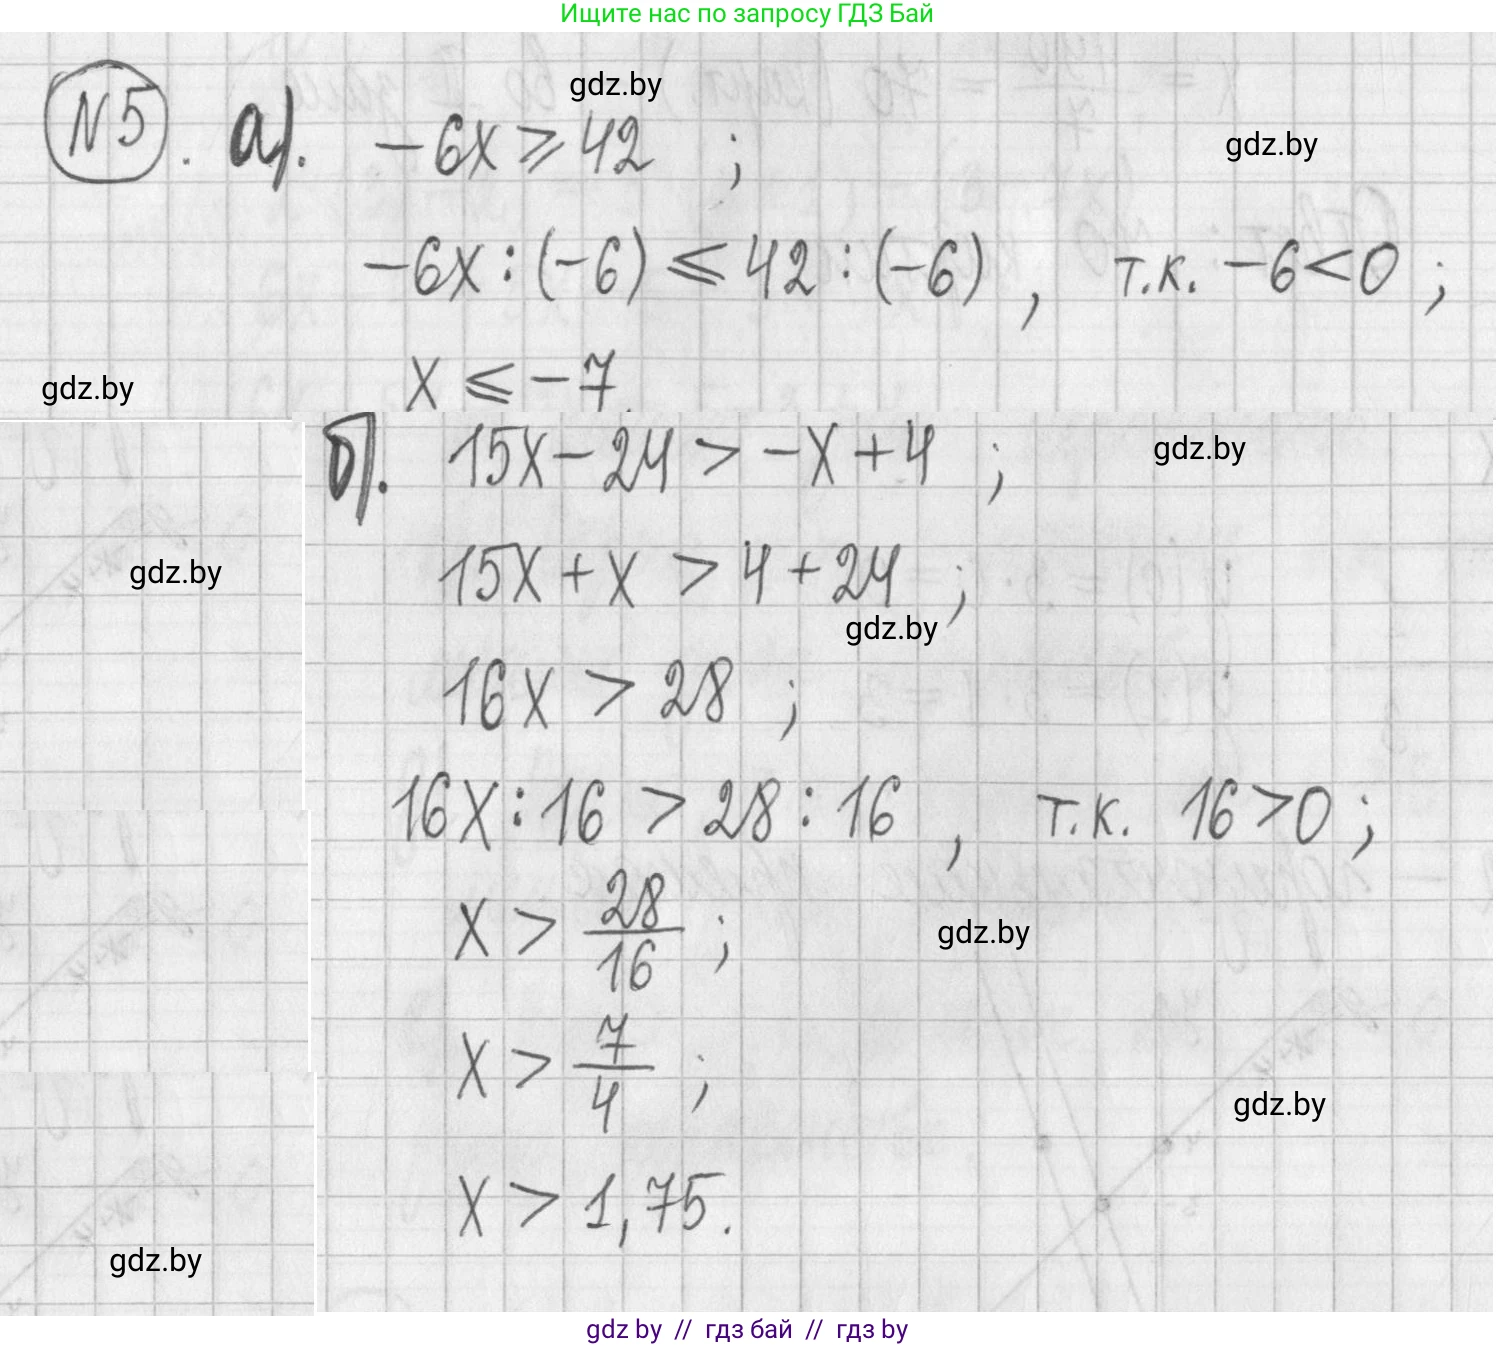 Ищите нас по запросу ГДЗ Бай
gdz.by
№5. а). -6x ⩾ 42 ;
gdz.by
-6x : (-6) ⩽ 42 : (-6) , т.к. -6 < 0 ;
gdz.by
x ⩽ -7.
б). 15x - 24 > -x + 4 ;
gdz.by
gdz.by
15x + x > 4 + 24 ;
gdz.by
16x > 28 ;
16x : 16 > 28 : 16 , т.к. 16 > 0 ;
x > 28/16 ;
gdz.by
x > 7/4 ;
gdz.by
x > 1,75.
gdz.by
gdz by // гдз бай // гдз by